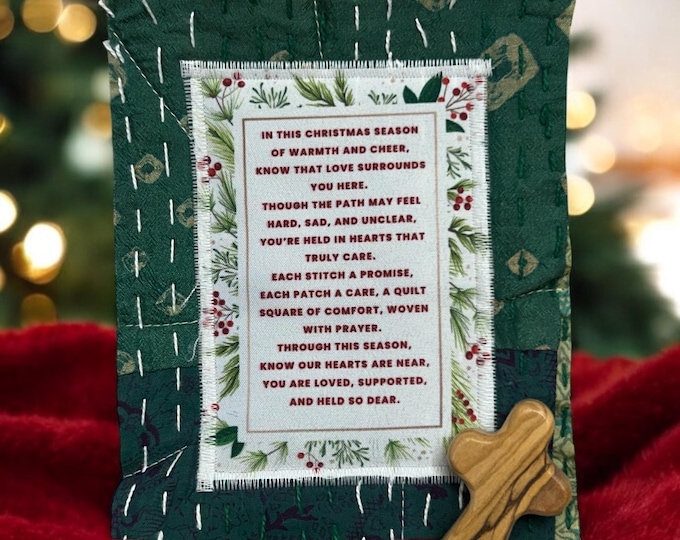 IN THIS CHRISTMAS SEASON
OF WARMTH AND CHEER,
KNOW THAT LOVE SURROUNDS
YOU HERE.
THOUGH THE PATH MAY FEEL
HARD, SAD, AND UNCLEAR,
YOU'RE HELD IN HEARTS THAT
TRULY CARE.
EACH STITCH A PROMISE,
EACH PATCH A CARE, A QUILT
SQUARE OF COMFORT, WOVEN
WITH PRAYER.
THROUGH THIS SEASON,
KNOW OUR HEARTS ARE NEAR,
YOU ARE LOVED, SUPPORTED,
AND HELD SO DEAR.